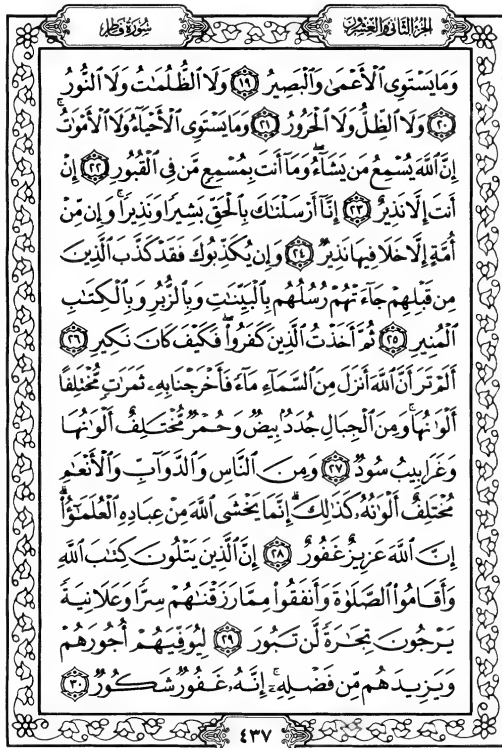 سُورَةُ فَاطِرٍ الجُزْءُ الثَّانِي وَالْعِشْرُونَ
وَمَا يَسْتَوِي الْأَعْمَىٰ وَالْبَصِيرُ ١٩ وَلَا الظُّلُمَاتُ وَلَا النُّورُ
٢٠ وَلَا الظِّلُّ وَلَا الْحَرُورُ ٢١ وَمَا يَسْتَوِي الْأَحْيَاءُ وَلَا الْأَمْوَاتُ ۚ
إِنَّ اللَّهَ يُسْمِعُ مَن يَشَاءُ ۖ وَمَا أَنتَ بِمُسْمِعٍ مَّن فِي الْقُبُورِ ٢٢ إِنْ
أَنتَ إِلَّا نَذِيرٌ ٢٣ إِنَّا أَرْسَلْنَاكَ بِالْحَقِّ بَشِيرًا وَنَذِيرًا ۚ وَإِن مِّنْ
أُمَّةٍ إِلَّا خَلَا فِيهَا نَذِيرٌ ٢٤ وَإِن يُكَذِّبُوكَ فَقَدْ كَذَّبَ الَّذِينَ
مِن قَبْلِهِمْ جَاءَتْهُمْ رُسُلُهُم بِالْبَيِّنَاتِ وَبِالزُّبُرِ وَبِالْكِتَابِ
الْمُنِيرِ ٢٥ ثُمَّ أَخَذْتُ الَّذِينَ كَفَرُوا ۖ فَكَيْفَ كَانَ نَكِيرِ ٢٦
أَلَمْ تَرَ أَنَّ اللَّهَ أَنزَلَ مِنَ السَّمَاءِ مَاءً فَأَخْرَجْنَا بِهِ ثَمَرَاتٍ مُّخْتَلِفًا
أَلْوَانُهَا ۚ وَمِنَ الْجِبَالِ جُدَدٌ بِيضٌ وَحُمْرٌ مُّخْتَلِفٌ أَلْوَانُهَا
وَغَرَابِيبُ سُودٌ ٢٧ وَمِنَ النَّاسِ وَالدَّوَابِّ وَالْأَنْعَامِ
مُخْتَلِفٌ أَلْوَانُهُ كَذَٰلِكَ ۗ إِنَّمَا يَخْشَى اللَّهَ مِنْ عِبَادِهِ الْعُلَمَاءُ ۗ
إِنَّ اللَّهَ عَزِيزٌ غَفُورٌ ٢٨ إِنَّ الَّذِينَ يَتْلُونَ كِتَابَ اللَّهِ
وَأَقَامُوا الصَّلَاةَ وَأَنفَقُوا مِمَّا رَزَقْنَاهُمْ سِرًّا وَعَلَانِيَةً
يَرْجُونَ تِجَارَةً لَّن تَبُورَ ٢٩ لِيُوَفِّيَهُمْ أُجُورَهُمْ
وَيَزِيدَهُم مِّن فَضْلِهِ ۚ إِنَّهُ غَفُورٌ شَكُورٌ ٣٠
٤٣٧